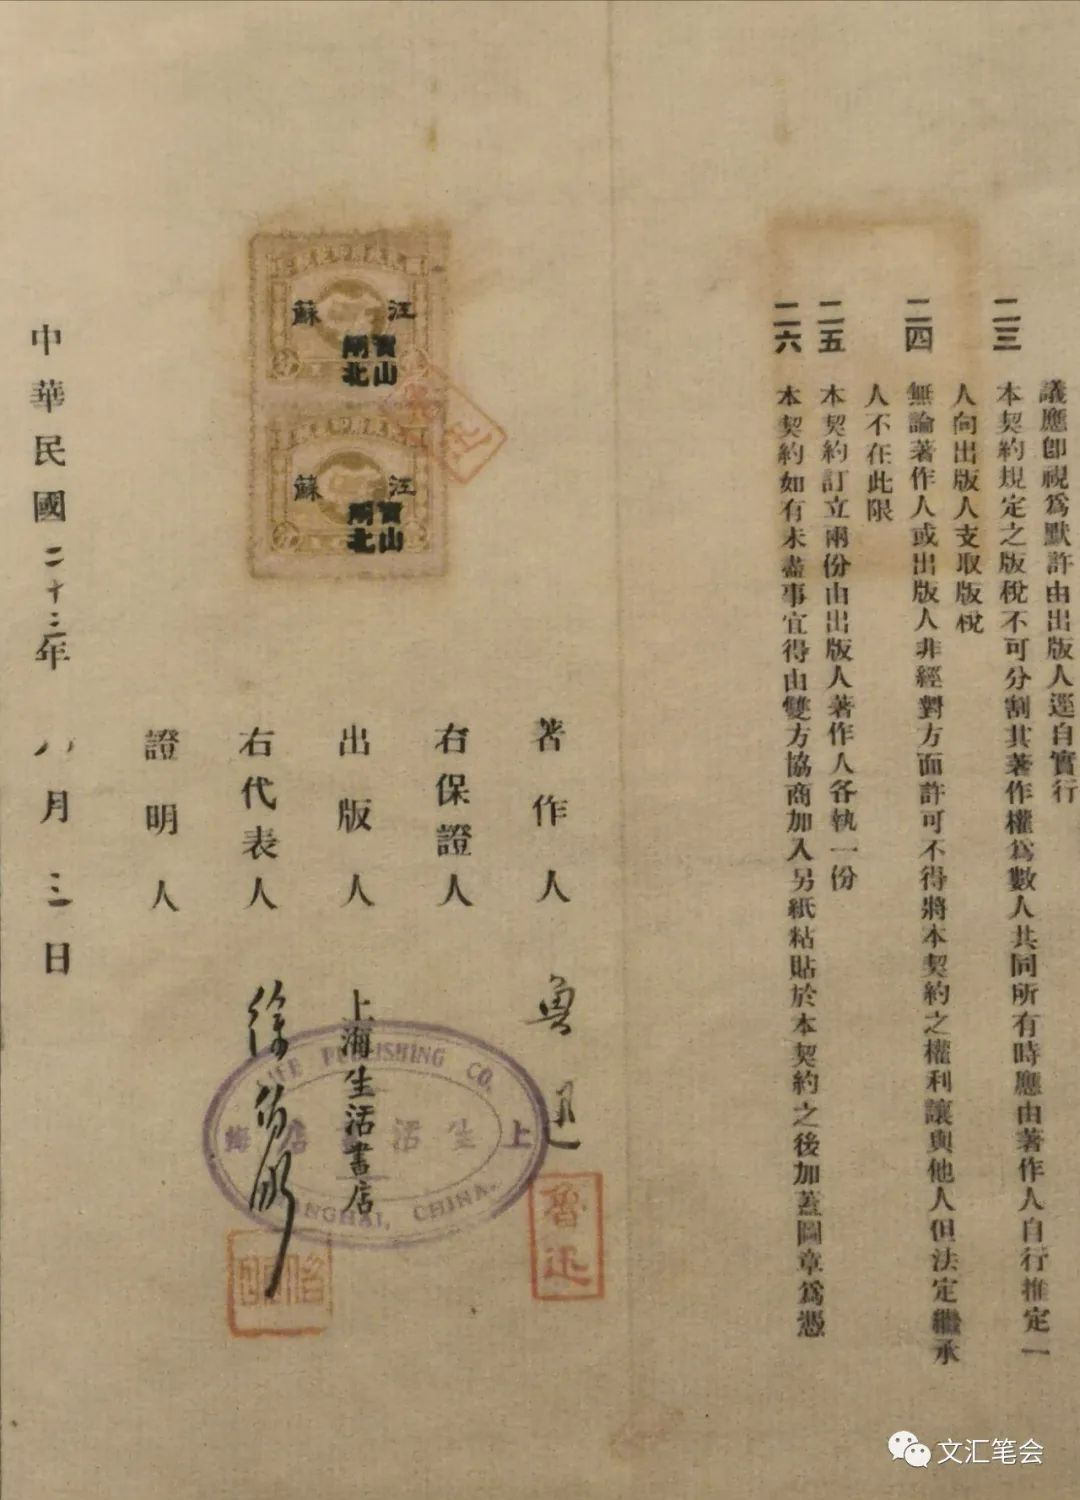 議應卽視爲默許由出版人逕自實行
二三 本契約規定之版稅不可分割其著作權爲數人共同所有時應由著作人自行推定一
人向出版人支取版稅
二四 無論著作人或出版人非經對方面許可不得將本契約之權利讓與他人但法定繼承
人不在此限
二五 本契約訂立兩份由出版人著作人各執一份
二六 本契約如有未盡事宜得由雙方協商加入另紙粘貼於本契約之後加蓋圖章爲憑
著作人 魯迅
魯迅
右保證人
出版人 上海生活書店
右代表人 徐伯昕
證明人
中華民國二十三年 八月三日
江蘇
寶山
閘北
江蘇
寶山
閘北
PUBLISHING CO.
上 生活 店 海
CHINA.
文汇笔会